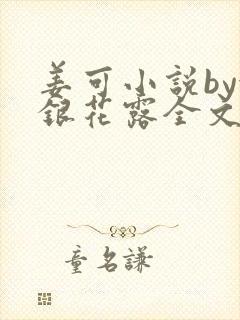 姜可小說by
銀花露全文
童名謙